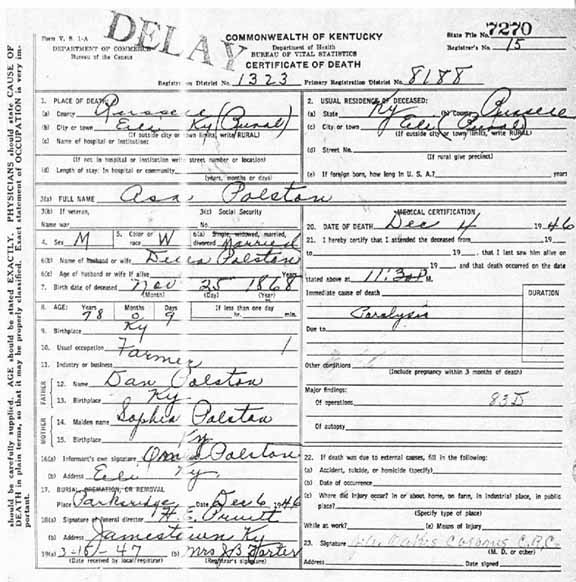 DELAY
Form V. S. 1-A
DEPARTMENT OF COMMERCE
Bureau of the Census
COMMONWEALTH OF KENTUCKY
Department of Health
BUREAU OF VITAL STATISTICS
CERTIFICATE OF DEATH
State File No. 7270
Registrar's No. 15
Registration District No. 1323 Primary Registration District No. 8188
should be carefully supplied. AGE should be stated EXACTLY. PHYSICIANS should state CAUSE OF
DEATH in plain terms, so that it may be properly classified. Exact statement of OCCUPATION is very im-
portant.
1. PLACE OF DEATH:
(a) County Russell
(b) City or town Eli Ky (Rural)
(If outside city or town limits, write RURAL)
(c) Name of hospital or institution:
(If not in hospital or institution write street number or location)
(d) Length of stay: In hospital or community
(years, months or days)
2. USUAL RESIDENCE OF DECEASED:
(a) State Ky (b) County Russell
(c) City or town Eli (Rural)
(If outside city or town limits, write RURAL)
(d) Street No.
(If rural give precinct)
(e) If foreign born, how long in U. S. A.? years
3(a) FULL NAME Asa Polston
3(b) If veteran,
Name war
3(c) Social Security
No.
4. Sex M
5. Color or
race W
6(a) Single, widowed, married,
divorced Married
6(b) Name of husband or wife Polston
6(c) Age of husband or wife if alive
7. Birth date of deceased Nov 25 1868
(Month) (Day) (Year)
8. AGE: Years Months Days If less than one day
78 0 9 hr. min.
9. Birthplace Ky
10. Usual occupation Farmer 1
11. Industry or business
FATHER
12. Name Dan Polston
13. Birthplace Ky.
MOTHER
14. Maiden name Sophia Polston
15. Birthplace Ky
16(a) Informant's own signature Polston
(b) Address Eli Ky.
17. BURIAL, CREMATION, OR REMOVAL
Place Date Dec 6 1946
18(a) Signature of funeral director Pruitt
(b) Address Jamestown Ky
19(a) 3-15-47 (b) Mrs J B Garter
(Date received by local registrar) (Registrar's signature)
MEDICAL CERTIFICATION
20. DATE OF DEATH Dec 4 1946
21. I hereby certify that I attended the deceased from 19
to 19, that I last saw him alive on
19, and that death occurred on the date
stated above at 11:30 P M.
Immediate cause of death
DURATION
Paralysis
Due to
Other conditions
(Include pregnancy within 3 months of death)
Major findings:
Of operations 83D
Of autopsy
22. If death was due to external causes, fill in the following:
(a) Accident, suicide, or homicide (specify)
(b) Date of occurrence
(c) Where did injury occur? In or about home, on farm, in industrial place, in public
place?
(Specify type of place)
While at work? (e) Means of injury
23. Signature
(M. D. or other)
Address Date signed